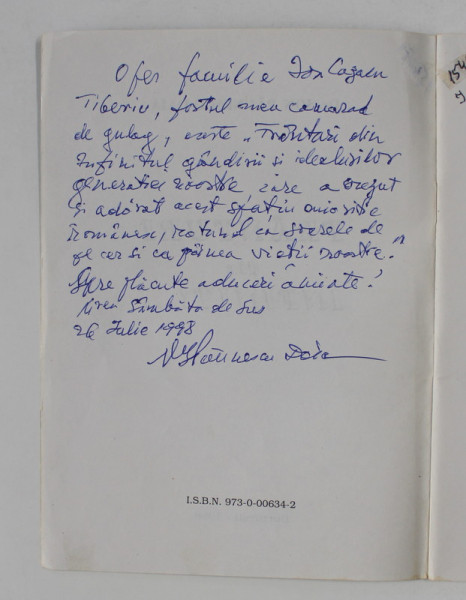 Ofer familiei Ion Cazacu
Tiberiu, fostul meu camarad
de gulag, carte „Trăirturi din
Infinitul gândirii și idealurilor
generației noastre care a crezut
și adorat acest sfat în mioritic
românesc, rotund ca stelele de
pe cer și ca pâinea vieții noastre."
Spre plăcute aduceri aminte!
Sâmbăta de Sus
26 Iulie 1998
I.S.B.N. 973-0-00634-2